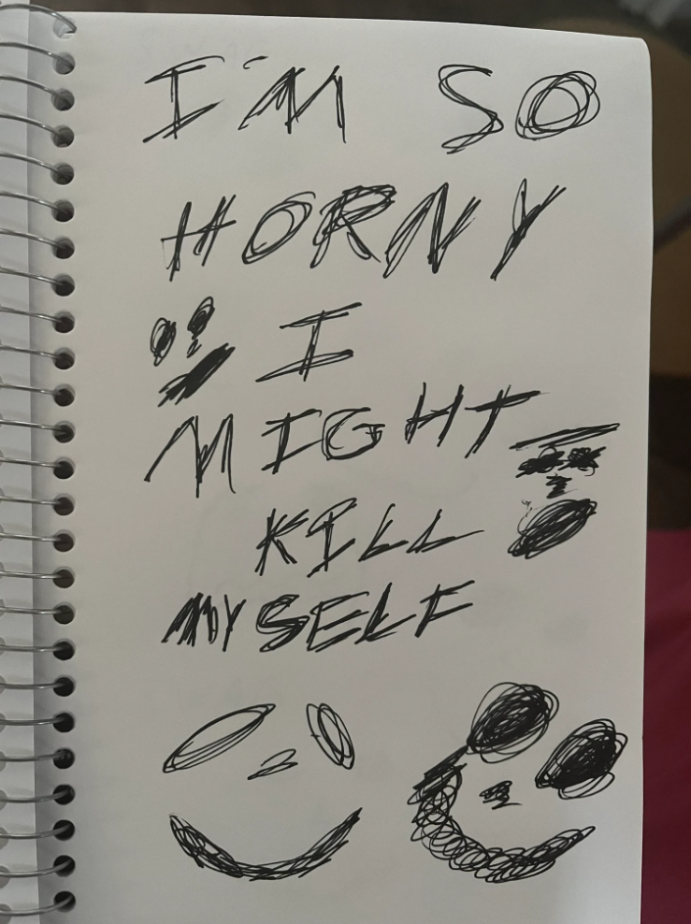 I'M SO
HORNY
I
MIGHT
KILL
MYSELF